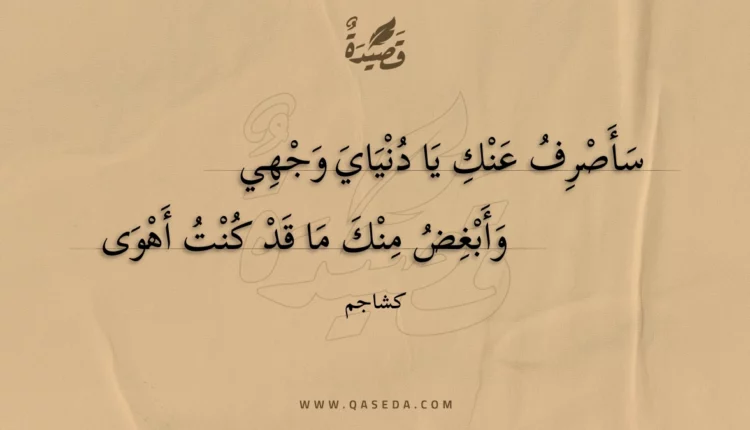 قَصِيدَةٌ
سَأَصْرِفُ عَنْكِ يَا دُنْيَايَ وَجْهِي
وَأَبْغِضُ مِنْكَ مَا قَدْ كُنْتُ أَهْوَى
كشاجم
WWW.QASEDA.COM